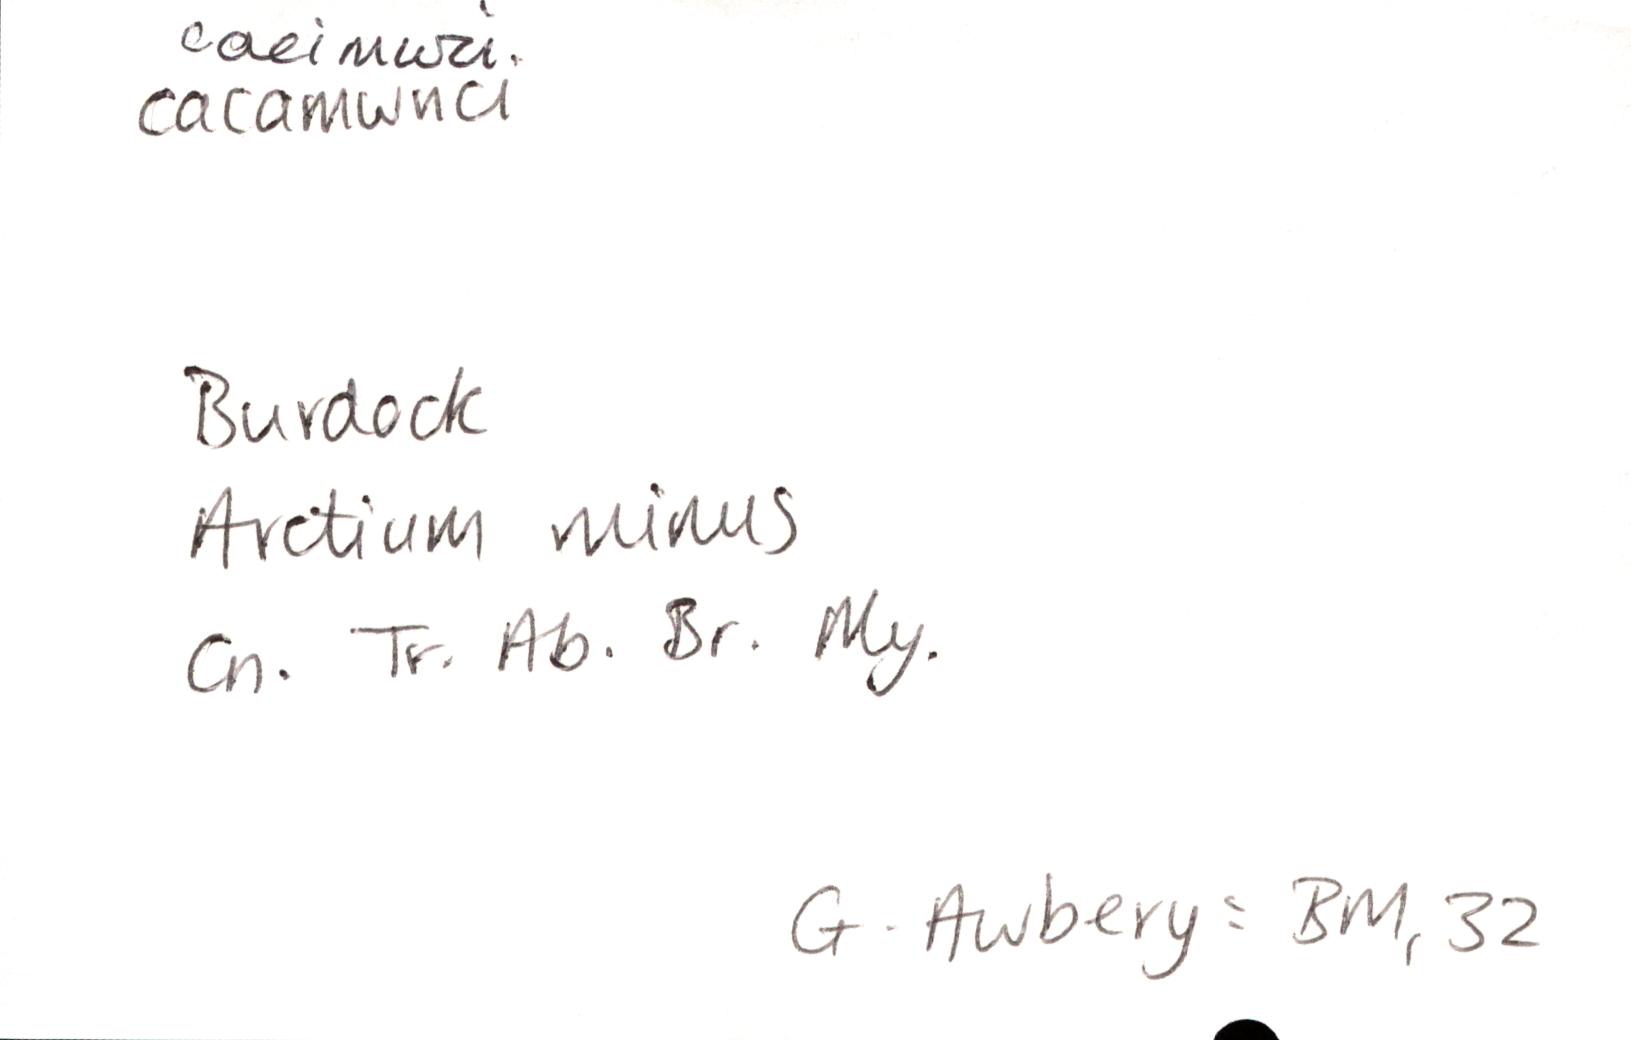 cacimwci.
cacamwnci
Burdock
Arctium minus
Cn. Tr. Ab. Br. My.
G. Awbery: BM, 32